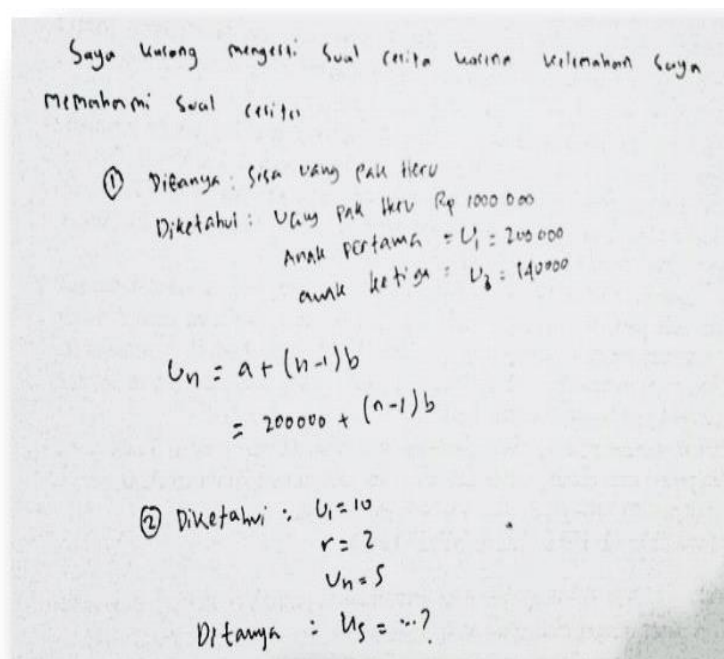 Saya kurang mengerti Soal cerita karena kelemahan saya
memahami soal cerita
① Ditanya : Sisa uang pak Heru
Diketahui : Uang pak Heru Rp 1000.000
Anak pertama = U₁ = 200000
anak ketiga = U₃ = 140000
Un = a + (n-1)b
= 200000 + (n-1)b
② Diketahui : U₁ = 10
r = 2
Un = 5
Ditanya : U5 = ...?